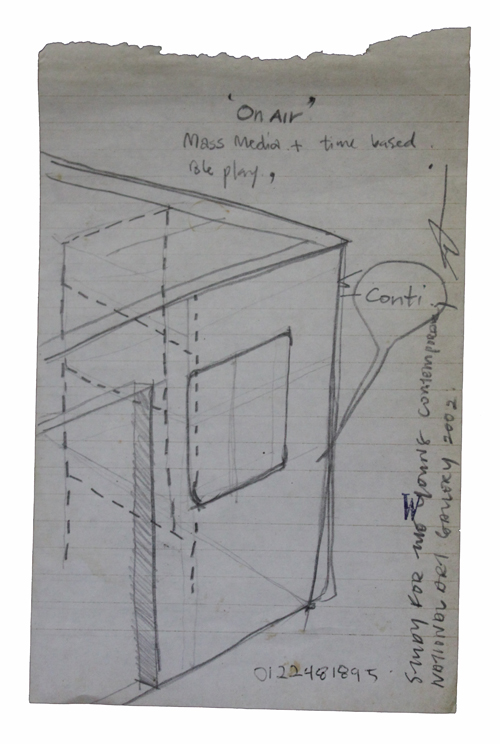 "On Air"
Mass Media + time based
role play,
Conti
STUDY FOR THE YOUNG CONTEMPORARY
NATIONAL ART GALLERY 2002.
0122481895.